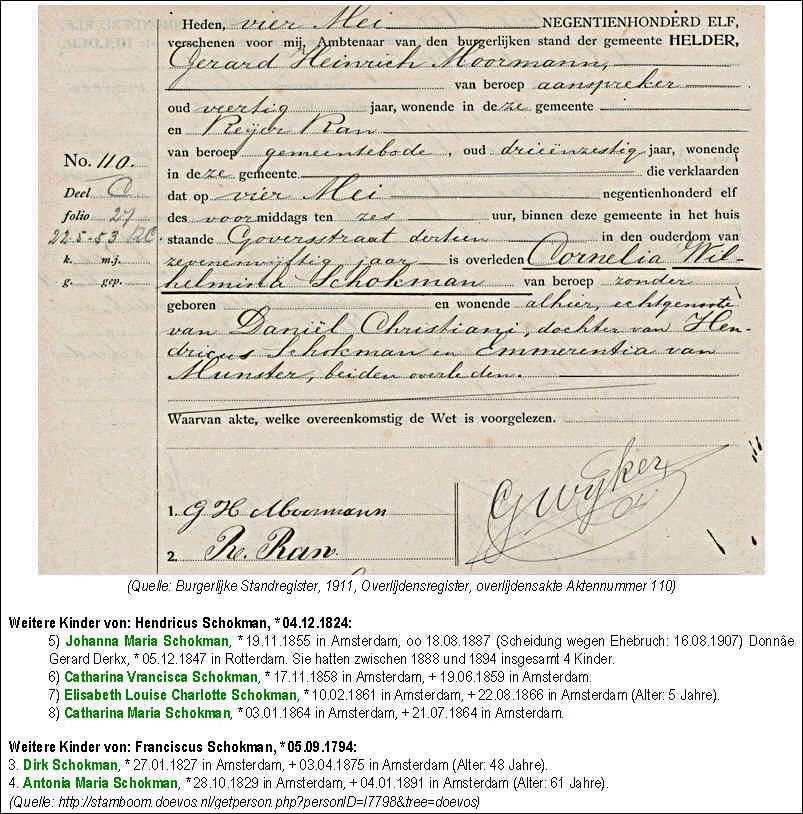 Heden, vier Mei NEGENTIENHONDERD ELF,
verschenen voor mij, Ambtenaar van den burgerlijken stand der gemeente HELDER,
Gerard Heinrich Moormann,
van beroep aanspreker
oud veertig jaar, wonende in deze gemeente
en Reijer Ran
van beroep gemeentebode, oud drieënzestig jaar, wonende
in deze gemeente die verklaarden
dat op vier Mei negentienhonderd elf
des voormiddags ten zes uur, binnen deze gemeente in het huis
staande Goversstraat dertien in den ouderdom van
zevenenvijftig jaar is overleden Cornelia Wil-
helmina Schokman van beroep zonder
geboren en wonende alhier, echtgenoote
van Daniël Christiani, dochter van Hen-
dricus Schokman en Emmerentia van
Munster, beiden overleden.
Waarvan akte, welke overeenkomstig de Wet is voorgelezen.
No. 110.
Deel C
folio 27
22.5.53
k. m.j.
g. gep.
1. G H Moormann
2. R. Ran.
G Wyker
(Quelle: Burgerlijke Standregister, 1911, Overlijdensregister, overlijdensakte Aktennummer 110)
Weitere Kinder von: Hendricus Schokman, *04.12.1824:
5) Johanna Maria Schokman, * 19.11.1855 in Amsterdam, oo 18.08.1887 (Scheidung wegen Ehebruch: 16.08.1907) Donnâe
Gerard Derkx, * 05.12.1847 in Rotterdam. Sie hatten zwischen 1888 und 1894 insgesamt 4 Kinder.
6) Catharina Vrancisca Schokman, * 17.11.1858 in Amsterdam, + 19.06.1859 in Amsterdam.
7) Elisabeth Louise Charlotte Schokman, * 10.02.1861 in Amsterdam, + 22.08.1866 in Amsterdam (Alter: 5 Jahre).
8) Catharina Maria Schokman, * 03.01.1864 in Amsterdam, + 21.07.1864 in Amsterdam.
Weitere Kinder von: Franciscus Schokman, *05.09.1794:
3. Dirk Schokman, * 27.01.1827 in Amsterdam, + 03.04.1875 in Amsterdam (Alter: 48 Jahre).
4. Antonia Maria Schokman, * 28.10.1829 in Amsterdam, + 04.01.1891 in Amsterdam (Alter: 61 Jahre).
(Quelle: http://stamboom.doevos.nl/getperson.php?personID=I7798&tree=doevos)